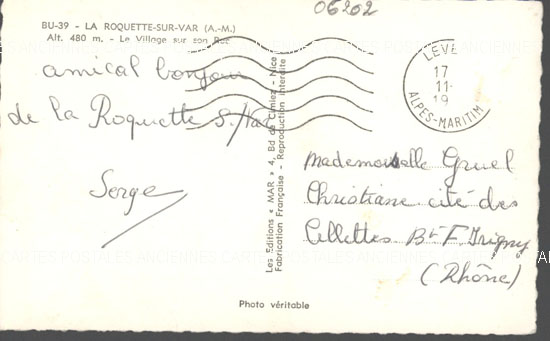 06202
BU-39 - LA ROQUETTE-SUR-VAR (A.-M.)
Alt. 480 m. - Le Village sur son Roc
amical bonjour
de la Roquette s/Var
Serge
LEVE
17
11-
19
ALPES-MARITIM
Les Editions « MAR » 4, Bd de Cimiez - Nice
Fabrication Française - Reproduction interdite
Mademoiselle Gruel
Christiane cité des
Cellettes Bt F. Irigny
(Rhône)
CARTES POSTALES ANCIENNES
Photo véritable